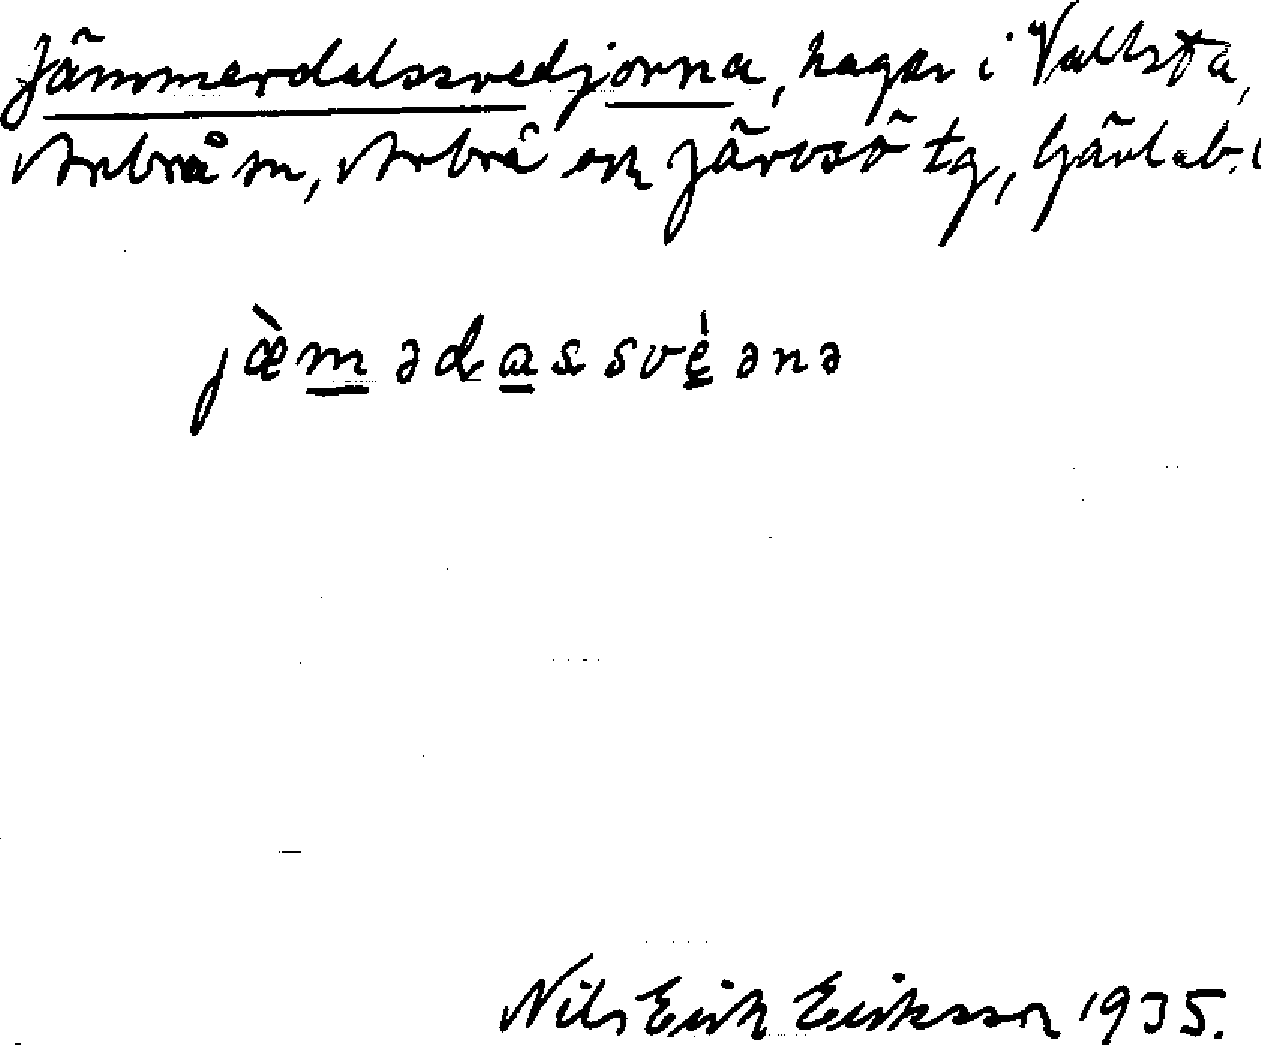 Jämmerdalssvedjorna, hagar i Vallsta,
Arbrå sn, Arbrå ok Järvsö tg, Gävleb. l
jæ̀m̲əda̲ssvé̲ənə
Nils Erik Eriksson 1935.